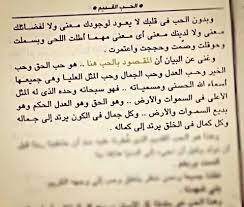 الحب القديم
وبدون الحب فى قلبك لا يعود لوجودك معنى ولا لفضائلك
معنى ولا لدينك معنى أى معنى مهما أطلت اللحى وبسملت
وحوقلت وصمت وحججت واعتمرت .
وغنى عن البيان أن المقصود بالحب هنا .. هو حب الحق وحب
الخير وحب العدل وحب الجمال وحب المثل العليا وهى جميعها
أسماء الله الحسنى ومسمياته .. فهو سبحانه وحده له المثل
الأعلى فى السموات والأرض .. وهو الحق وهو العدل الحكم وهو
بديع السموات والأرض .. وكل جمال فى الكون يرتد إلى جماله
وكل كمال فى الخلق يرتد إلى كماله .